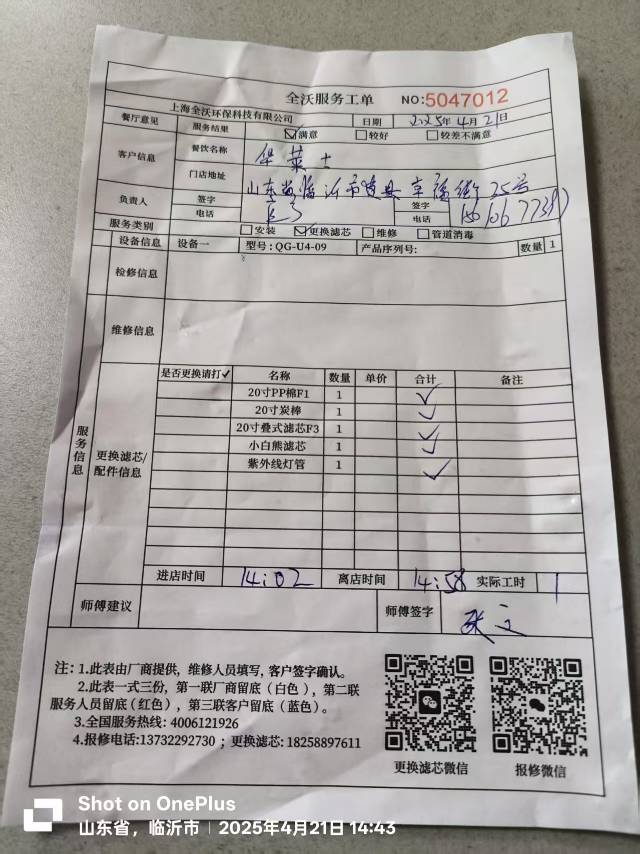 全沃服务工单 NO:5047012
上海全沃环保科技有限公司 日期 2025年4月21日
餐厅意见 服务结果 ☑满意 □较好 □较差不满意
客户信息 餐饮名称 华莱士
门店地址 山东省临沂市费县 幸福街 25号
负责人 签字 签字
电话 电话
服务类别 □安装 ☑更换滤芯 □维修 □管道消毒
设备信息 设备一 型号: QG-U4-09 产品序列号: 数量 1
检修信息
维修信息
服务信息
更换滤芯/配件信息
是否更换请打✓ 名称 数量 单价 合计 备注
20寸PP棉F1 1 ✓
20寸炭棒 1 ✓
20寸叠式滤芯F3 1 ✓
小白熊滤芯 1 ✓
紫外线灯管 1 ✓
进店时间 14:02 离店时间 14:58 实际工时 1
师傅建议 师傅签字 张文
注: 1.此表由厂商提供, 维修人员填写, 客户签字确认。
2.此表一式三份, 第一联厂商留底(白色), 第二联
服务人员留底(红色), 第三联客户留底(蓝色)。
3.全国服务热线: 4006121926
4.报修电话:13732292730 ; 更换滤芯: 18258897611
更换滤芯微信 报修微信
Shot on OnePlus
山东省, 临沂市 | 2025年4月21日 14:43